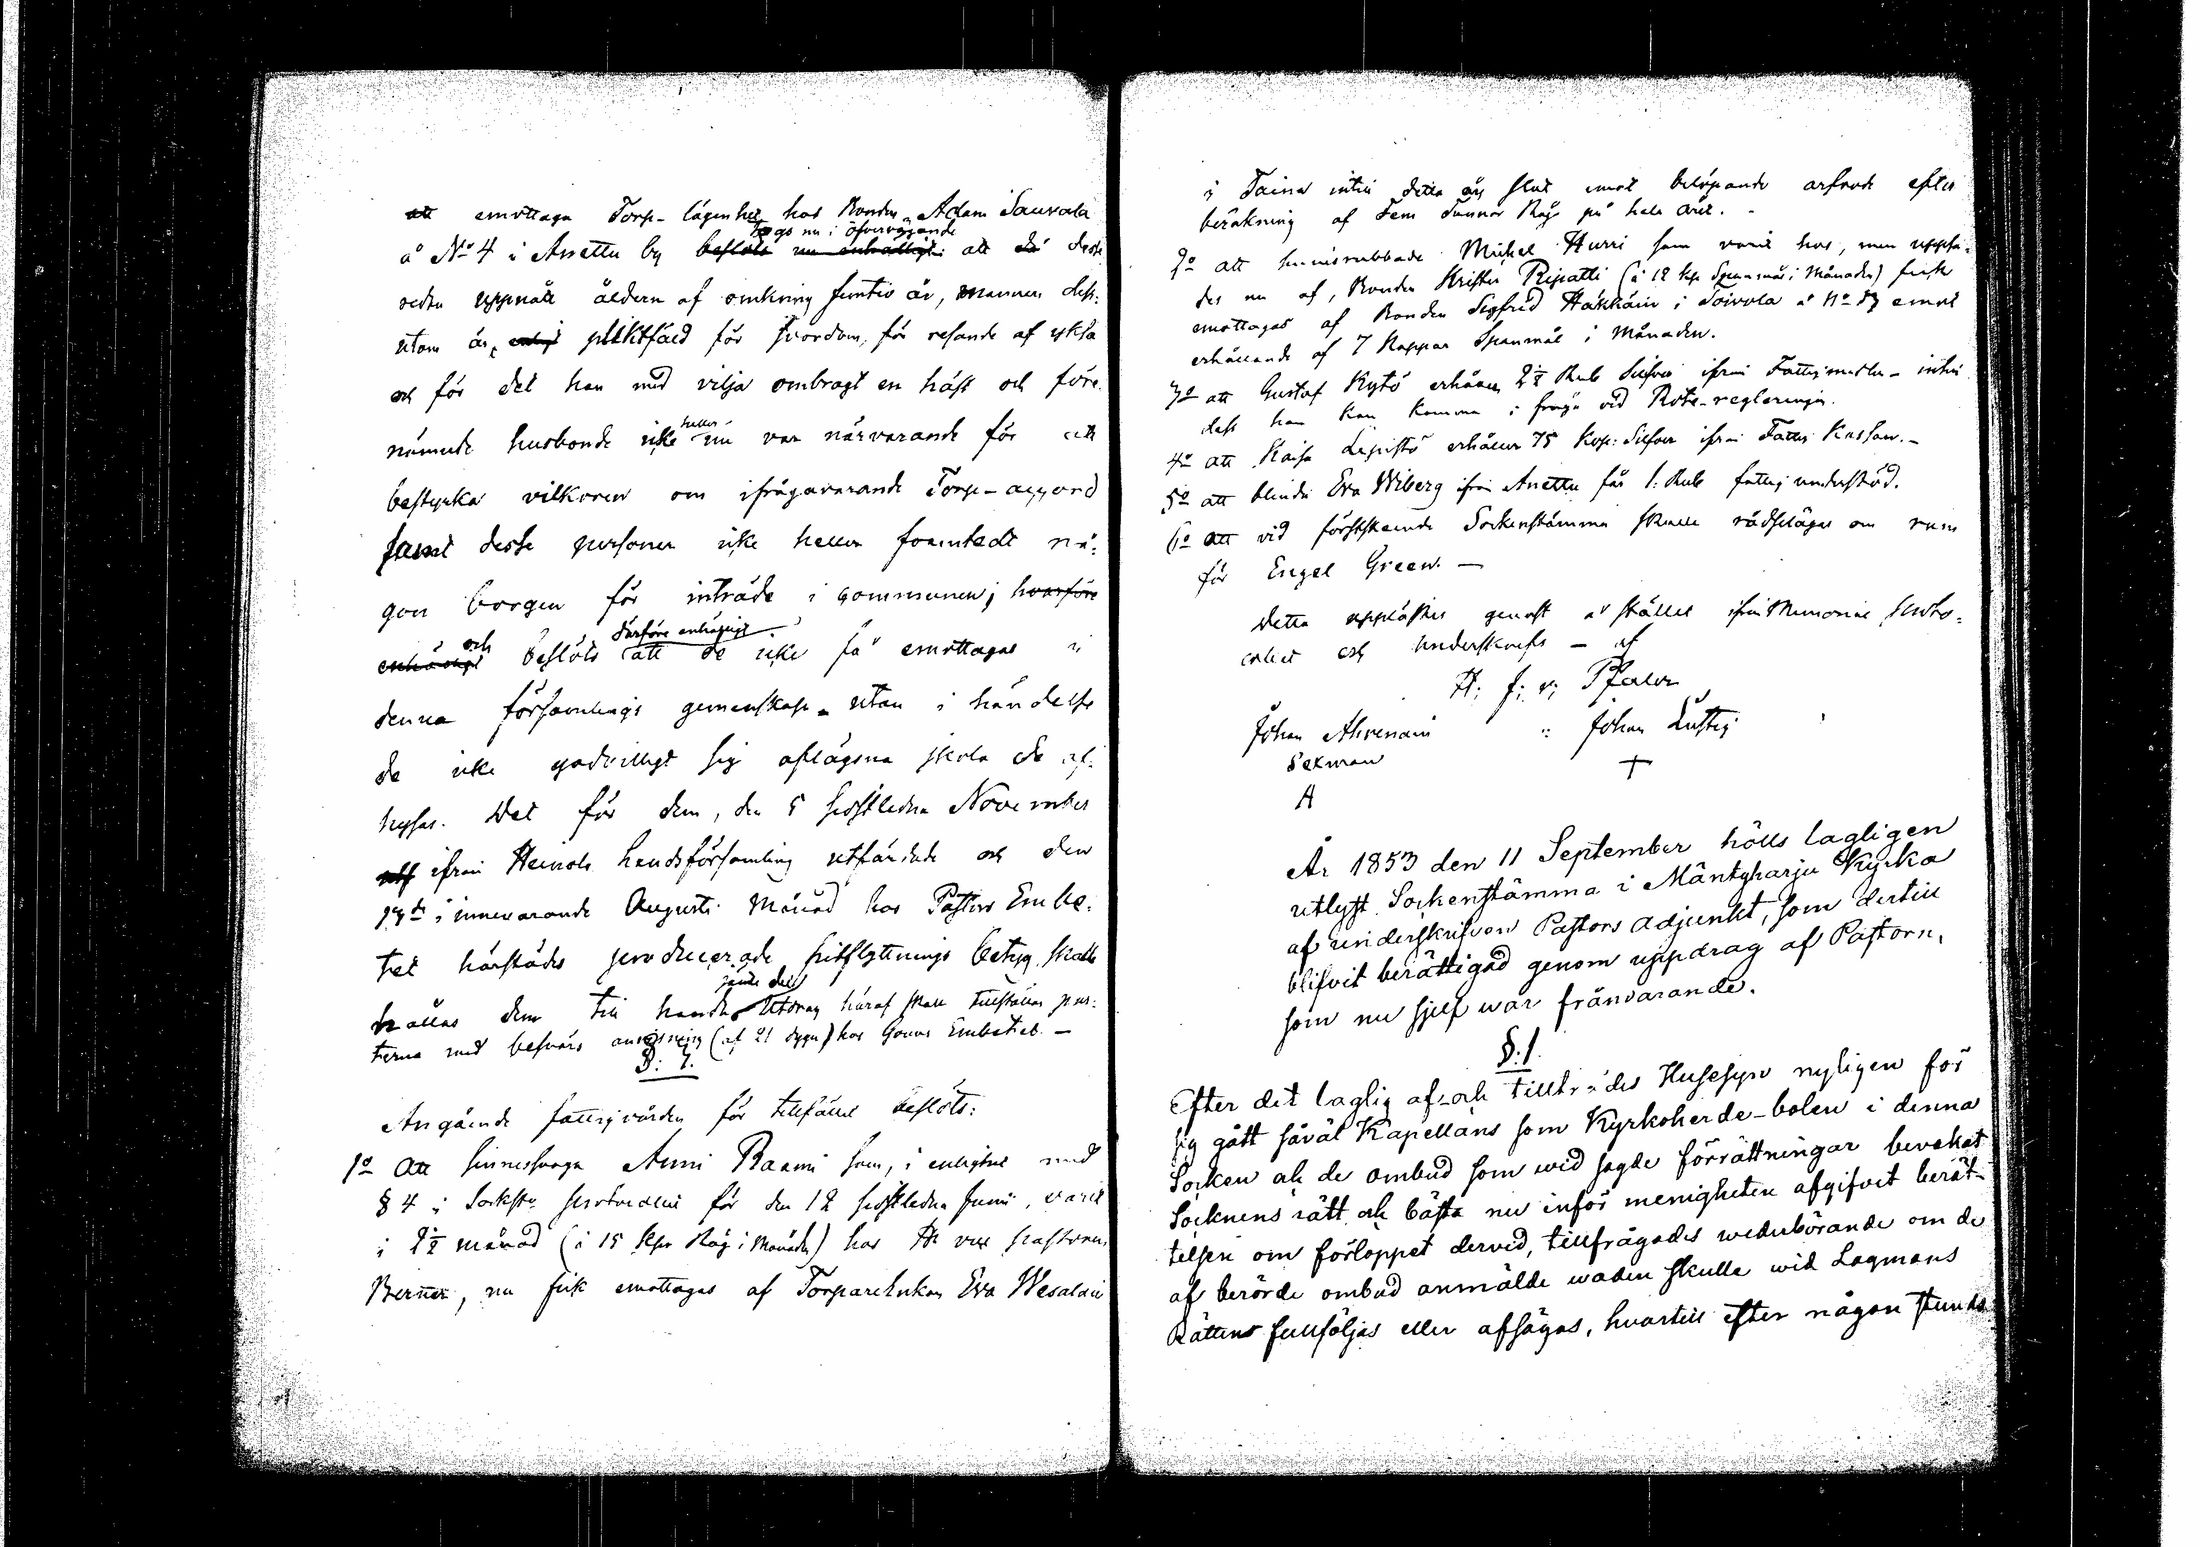 att emottaga Torp-lägenhet hos Bonden Adam Sauvala
togs nu i öfvervägande
å No 4 i Anettu by beslöts nu enhälligt: att då desse
redan uppnått åldern af omkring femtio år, mannen dess-
utom är, enligt pliktfäld för hvordom, för resande af
och för det han med vilja ombragt en häst och före-
nämnde husbonde icke heller nu var närvarande för att
bestyrka vilkoren om ifrågavarande Torp-accord
samt desse personer icke heller framtedt nå-
gon borgen för inträde i communen; hvarföre
enhälligt och beslöts därföre enhälligt att de icke få emottagas i
denna församlings gemenskap utan i händelse
de icke godvilligt sig aflägsna skola de af-
hysas. Det för dem, den 5 sidstledne November
ifrån Heinola Landsförsamling utfärdade och den
17de i innevarande Augusti Månad hos Pastors Embe-
tet härstädes producerade hitflyttnings betyg skall
hållas dem till handa jemte det Utdrag häraf skall tillställas par-
terna med besvärs anvisning (af 21 dygn) hos Gouvs Embetet. -
§. 7.
Angående fattigvården för tillfället beslöts:
1o Att sinnessvaga Anni Raami som, i enlighet med
§ 4 i Sockste protocollet för den 12 sidstledne Juni, varit
i 2½ månad (à 15 kpr Råg i Månaden) hos
Berner, nu fick emottagas af Torpareenkan Eva Wesalain
i Taina intill detta års slut emot belöpande arfvode efter
beräkning af Fem Tunnor Råg på hela året. -
2o att sinnesrubbade Michel Hurri som varit hos, men uppsa-
des nu af, Bonden Krister Ripatti (à 12 kpr Spannmål i Månaden) fick
emottagas af Bonden Segfrid Häkkäin i Toivola å No 17 emot
erhållande af 7 Kappar Spanmål i Månaden.
3o att Gustaf Kytö erhåller 2½ Rub Silfver ifrån Fattigmedlen - intill
dess han kan komma i fråga vid Rote-regleringen.
4o att Kaisa Lepistö erhåller 75 Kop: Silfver ifrån Fattig Kassan. -
5o att blinde Eva Wiberg ifrån Anettu får 1. Rub fattig understöd.
6o att vid förstskeende Sockenstämma skulle rådslägas om rum
för Engel Green. -
Detta upplästes genast å stället ifrån Memorial proto-
collet och underskrefs - af
H: f: v: Pfaler
Johan Ahvenain " Johan Lustig
Sexman +
A
År 1853 den 11 September hölls lagligen
utlyst Sockenstämma i Mäntyharju Kyrka
af underskrifven Pastors Adjunkt, som dertill
blifvit berättigad genom uppdrag af Pastorn,
som nu sjelf war frånvarande.
§. 1.
Efter det laglig af- och tillträdes Husesyn nyligen för
sig gått såväl Kapellans som Kyrkoherde-bolen i denna
Socken och de ombud som wid sagde förrättningar bevakat
Socknens rätt och bästa nu inför menigheten afgifvit berät-
telsen om förloppet dervid, tillfrågades wederbörande om de
af berörde ombud anmälde waden skulle wid Lagmans
Rätten fullföljas eller afsägas, hvartill efter någon stunds